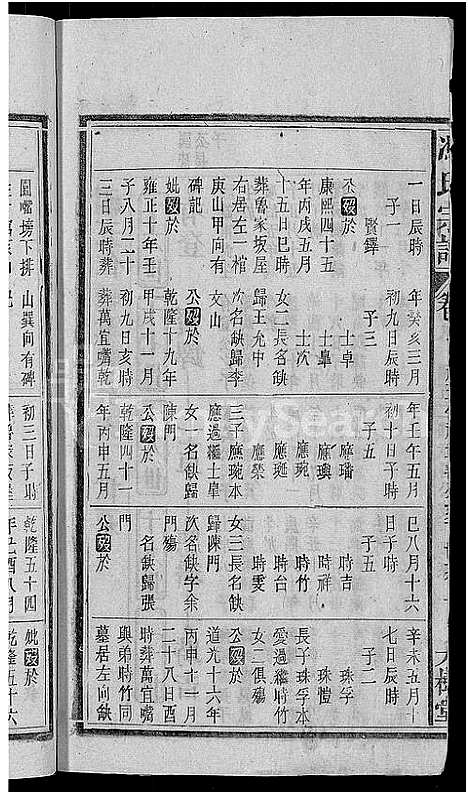 氏宗譜
卷
大樹堂
一日辰時
子一
賢鐸
公歿於
康熙四十五
年丙戌五月
十五日巳時
葬魯家坂屋
右居左一棺
庚山甲向有
碑記
妣歿於
雍正十年壬
子八月二十
三日辰時葬
年癸亥三月
初九日辰時
子三
士卓
士皐
士次
女二長名缺
歸王允中
次名缺歸李
文山
公歿於
乾隆十九年
甲戌十一月
初九日亥時
葬萬宜嘴乾
年壬午五月
初十日子時
子五
應璠
應璵
應琬
應珽
應榮
三子應琬本
應過繼士皐
女一名缺歸
陳門
公歿於
乾隆四十一
年丙申五月
巳八月十六
日子時
子五
時吉
時祥
時竹
時台
時雯
女三長名缺
歸陳門
次名缺字余
門殤
名缺歸張
門
公歿於
辛未五月十
七日辰時
子二
珠愷
珠孚
長子珠孚本
愛過繼時竹
女二俱殤
公歿於
道光十六年
丙申十一月
二十八日酉
時葬萬宜嘴
與弟時竹同
墓居左向缺
園嘴塝下排
山巽向有碑
初三日子時
乾隆五十四
年己酉八月
妣歿於
乾隆五十六